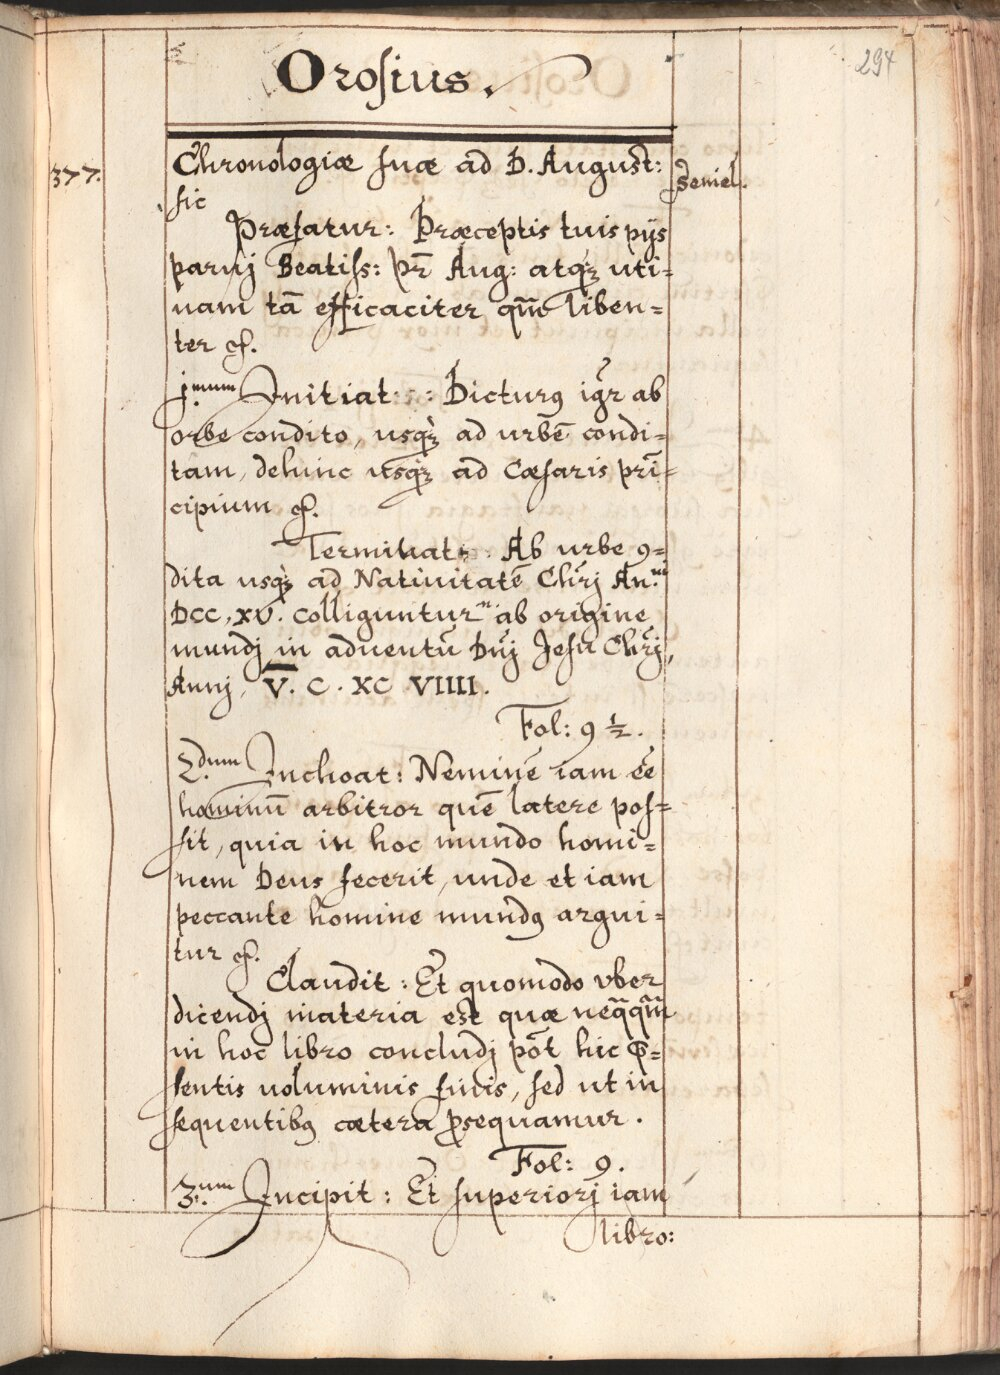 294
Orosius.
377.
Chronologiæ suæ ad D. August:
Semel.
sic
Præfatur: Præceptis tuis pijs
paruj Beatiss: pr̄ Aug: atqꝫ uti=
nam tā efficaciter qm̄ liben=
ter &.
j.mum Initiat: : Dicturꝰ igr̄ ab
orbe condito, usqꝫ ad urbē condi=
tam, dehinc usqꝫ ad Cæsaris prī=
cipium &.
Terminat: Ab urbe ꝯ=
dita usqꝫ ad Natiuitatē Chrj̄ An.
DCC, XV. colliguntur ab origine
mundj in aduentū Dnj̄ Jesu Chrj̄,
Annj, V̅. C. XC VIIII.
Fol: 9 ½.
2.dum Inchoat: Neminē iam ēē
hominū arbitror quē latere pos=
sit, quia in hoc mundo homi=
nem Deus fecerit, unde etiam
peccante homine mundꝰ argui=
tur &.
Claudit: Et quomodo vber
dicendj materia est quæ neq̄qm̄
in hoc libro concludj pōt hic p̄=
sentis uoluminis finis, sed ut in
sequentibꝰ cætera ꝓsequamur.
Fol: 9.
3.um Incipit: Et superiorj iam
libro: